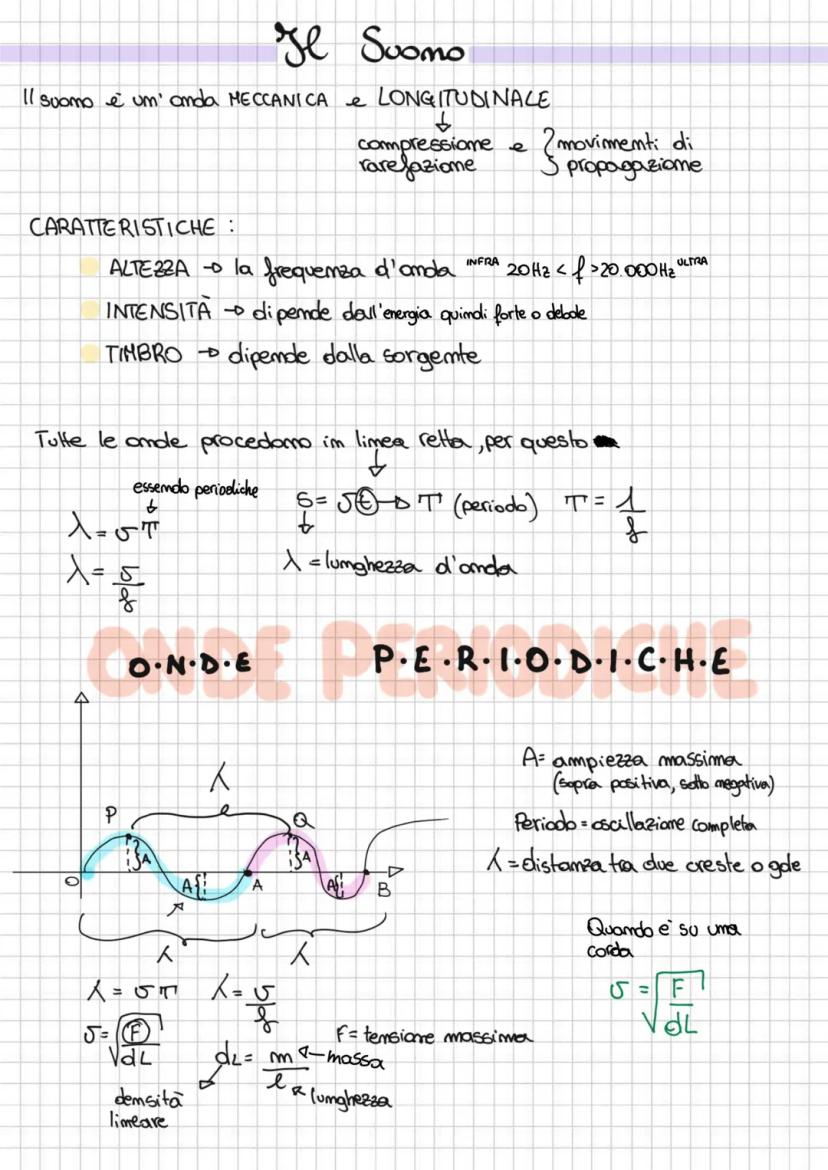 Il Suono
Il suono è un'onda MECCANICA e LONGITUDINALE
↓
compressione e { movimenti di
rarefazione propagazione
CARATTERISTICHE :
ALTEZZA → la frequenza d'onda INFRA 20Hz < f > 20.000Hz ULTRA
INTENSITÀ → dipende dall'energia quindi forte o debole
TIMBRO → dipende dalla sorgente
Tutte le onde procedono in linea retta, per questo
↓
essendo periodiche
↓
S = v t → T (periodo) T = 1/f
↓
λ = v T
λ = lunghezza d'onda
λ = v/f
ONDE PERIODICHE
O·N·D·E P·E·R·I·O·D·I·C·H·E
A = ampiezza massima
(sopra positiva, sotto negativa)
Periodo = oscillazione completa
λ = distanza tra due creste o gole
λ
P Q
A A
O A A A B
λ λ
Quando è su una
corda
v = √F/dL
λ = v T λ = v/f
v = √F/dL F = tensione massima
dL = m ← massa
l ← lunghezza
densità
lineare